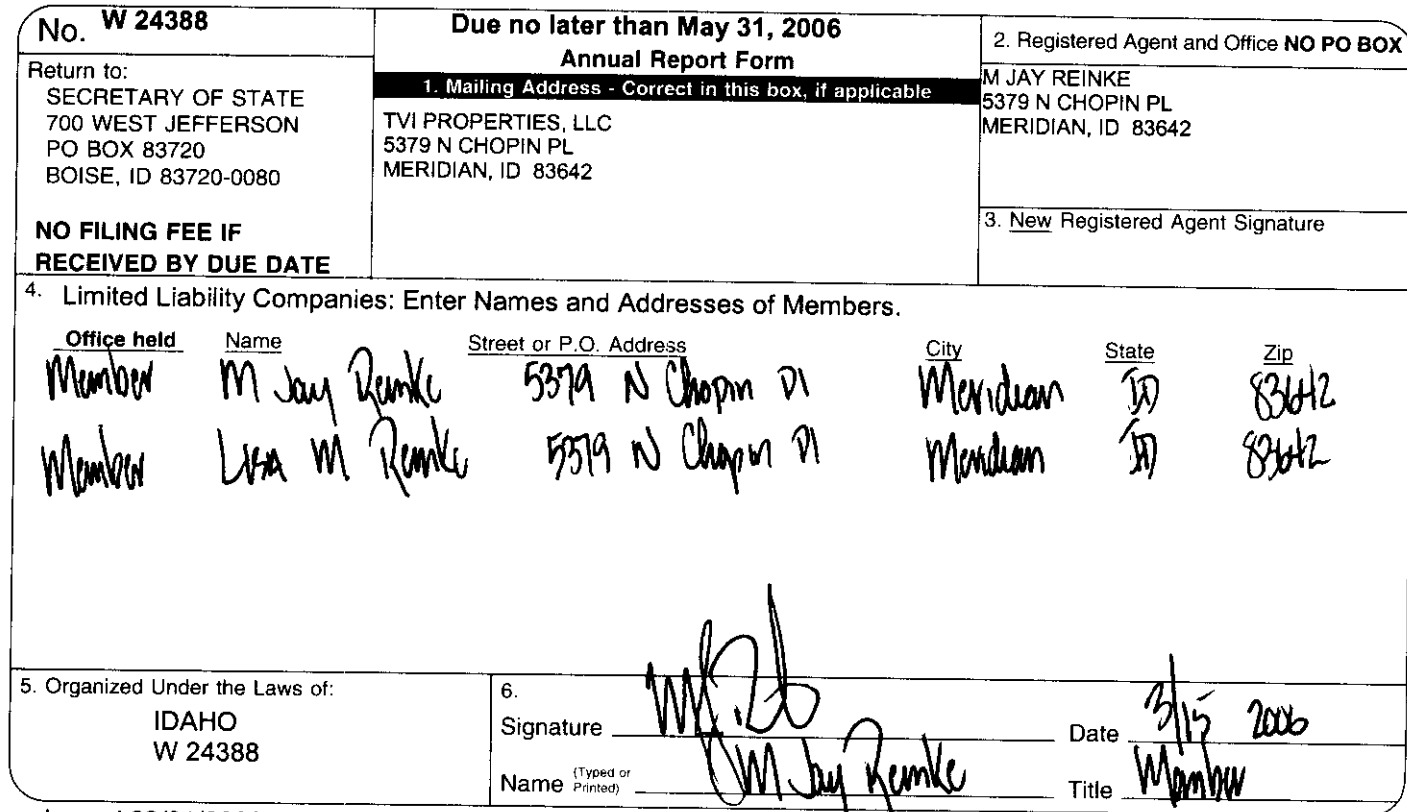 No. W 24388
Return to:
SECRETARY OF STATE
700 WEST JEFFERSON
PO BOX 83720
BOISE, ID 83720-0080
NO FILING FEE IF
RECEIVED BY DUE DATE
Due no later than May 31, 2006
Annual Report Form
1. Mailing Address - Correct in this box, if applicable
TVI PROPERTIES, LLC
5379 N CHOPIN PL
MERIDIAN, ID 83642
2. Registered Agent and Office NO PO BOX
M JAY REINKE
5379 N CHOPIN PL
MERIDIAN, ID 83642
3. New Registered Agent Signature
4. Limited Liability Companies: Enter Names and Addresses of Members.
Office held Name Street or P.O. Address City State Zip
Member M Jay Reinke 5379 N Chopin Pl Meridian ID 83642
Member Lisa M Reinke 5379 N Chopin Pl Meridian ID 83642
5. Organized Under the Laws of:
IDAHO
W 24388
6.
Signature Date 3/15 2006
Name (Typed or Printed) M Jay Reinke Title Member